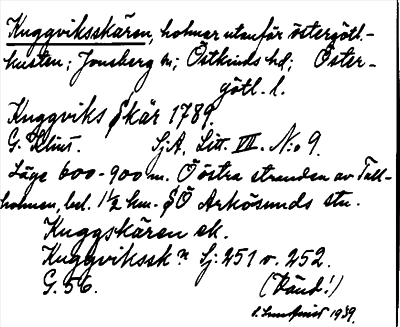 Kuggviksskären, holmar utanför östergötl.-
kusten; Jonsberg sn; Östkinds hd; Öster-
götl. l.
Kuggviks Skär 1789.
G. Klint. Sj.A. Litt. VII. N:o 9.
Läge 600-900 m. Ö östra stranden av Tall-
holmen, bel. 1 1/2 km. SÖ Arkösunds stn.
Kuggskären ek.
Kuggvikssk:n Sj: 251 v. 252.
G. 56. (Vänd!)
1939.